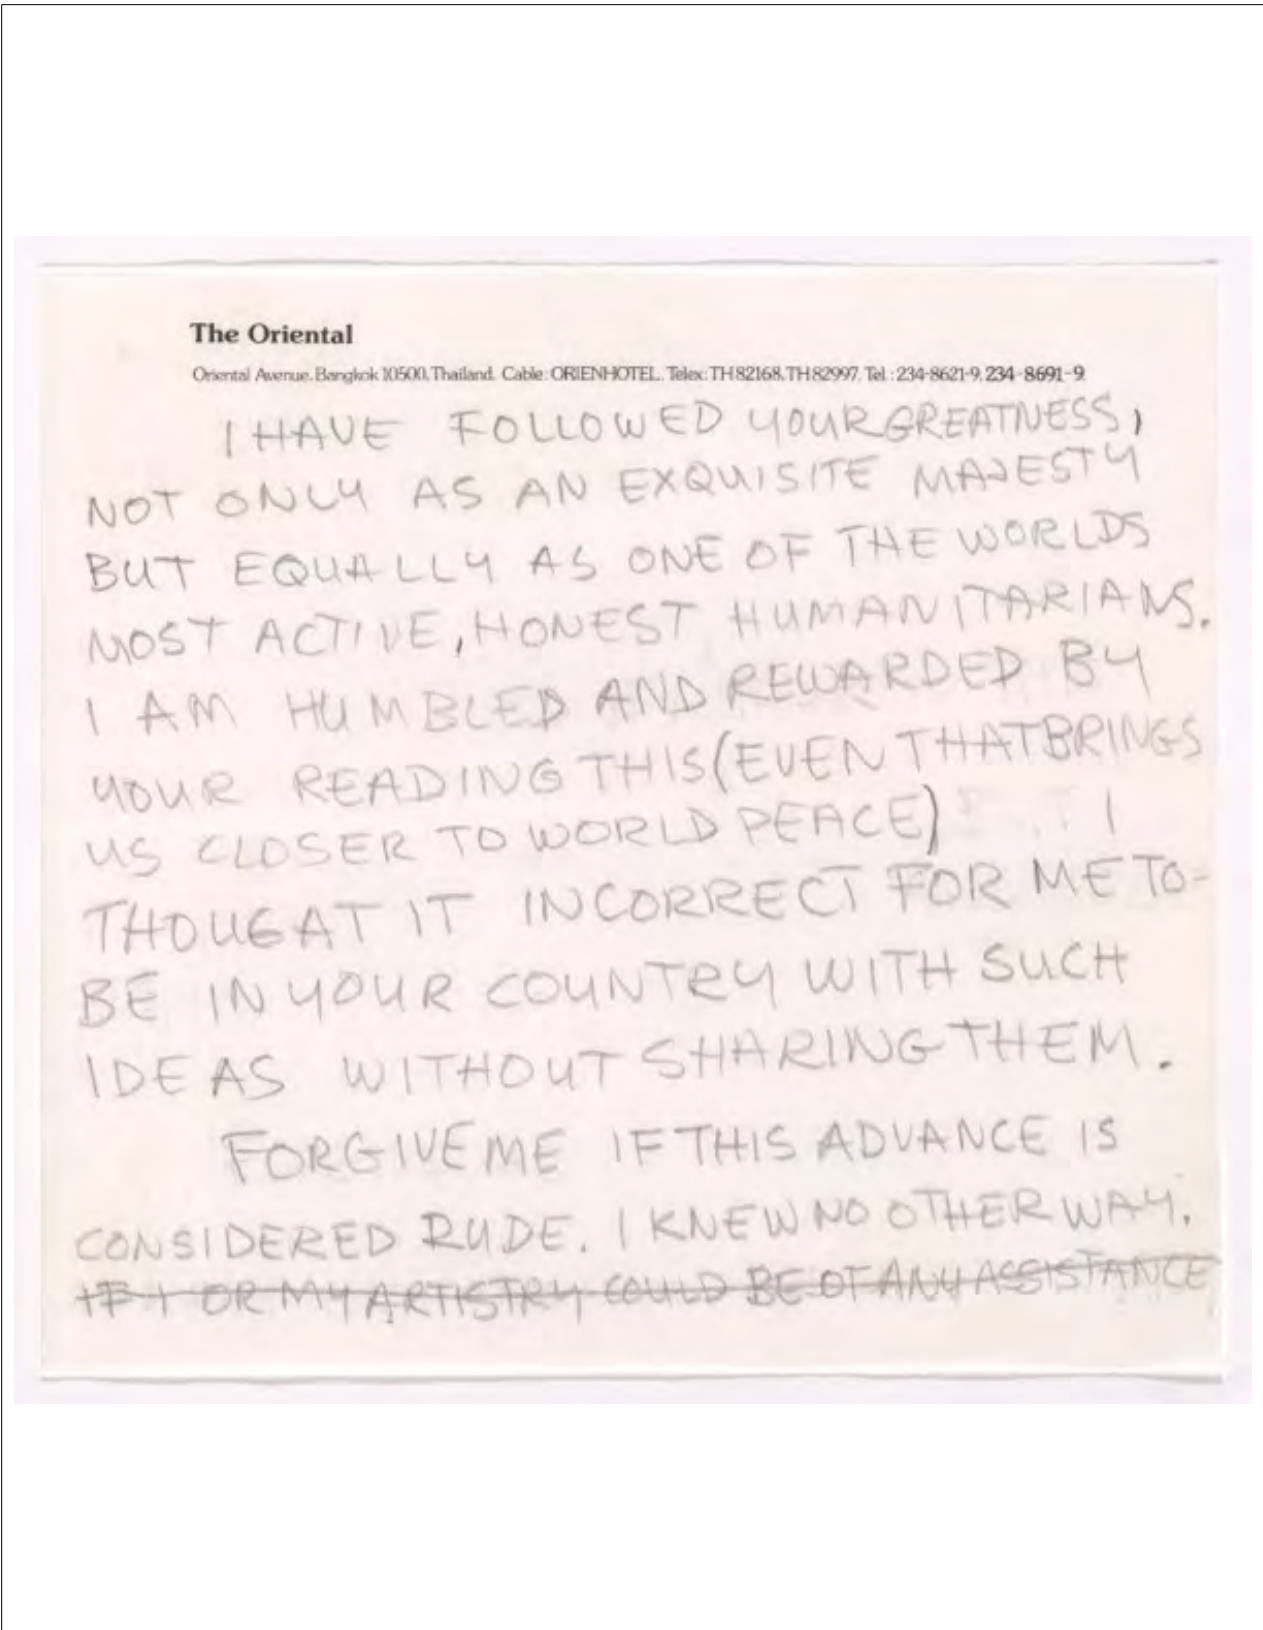 The Oriental
Oriental Avenue, Bangkok 10500, Thailand. Cable: ORIENHOTEL. Telex: TH 82168, TH 82997. Tel.: 234-8621-9, 234-8691-9.
I HAVE FOLLOWED YOUR GREATNESS,
NOT ONLY AS AN EXQUISITE MAJESTY
BUT EQUALLY AS ONE OF THE WORLDS
MOST ACTIVE, HONEST HUMANITARIANS.
I AM HUMBLED AND REWARDED BY
YOUR READING THIS (EVEN THAT BRINGS
US CLOSER TO WORLD PEACE) I
THOUGAT IT INCORRECT FOR ME TO-
BE IN YOUR COUNTRY WITH SUCH
IDEAS WITHOUT SHARING THEM.
FORGIVE ME IF THIS ADVANCE IS
CONSIDERED RUDE. I KNEW NO OTHER WAY.
IF I OR MY ARTISTRY COULD BE OF ANY ASSISTANCE